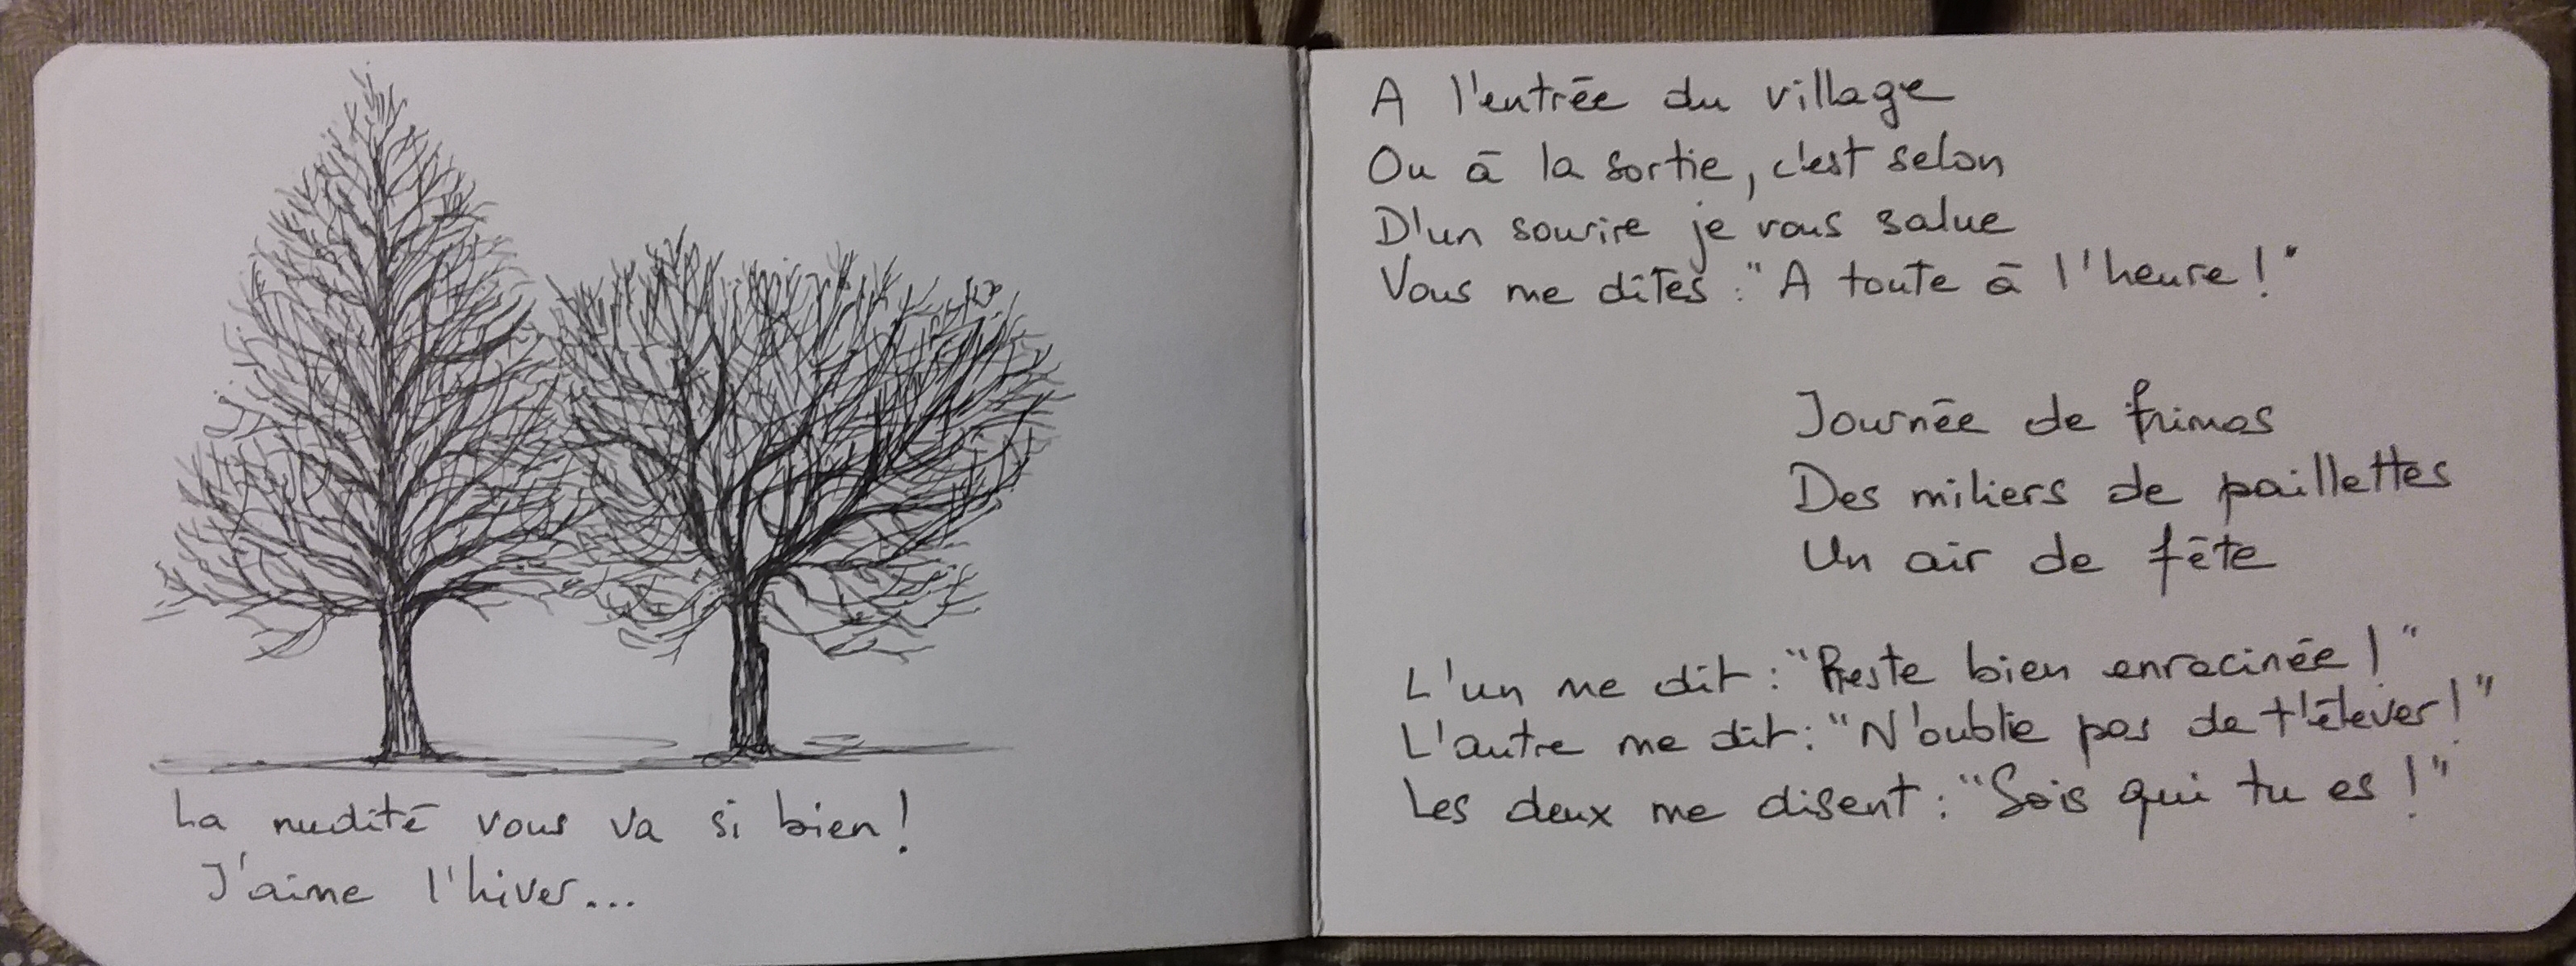 La nudité vous va si bien !
J'aime l'hiver...
A l'entrée du village
Ou à la sortie, c'est selon
D'un sourire je vous salue
Vous me dîtes : "A toute à l'heure !"
Journée de frimas
Des miliers de paillettes
Un air de fête
L'un me dit : "Reste bien enracinée !"
L'autre me dit : "N'oublie pas de t'élever !"
Les deux me disent : "Sois qui tu es !"